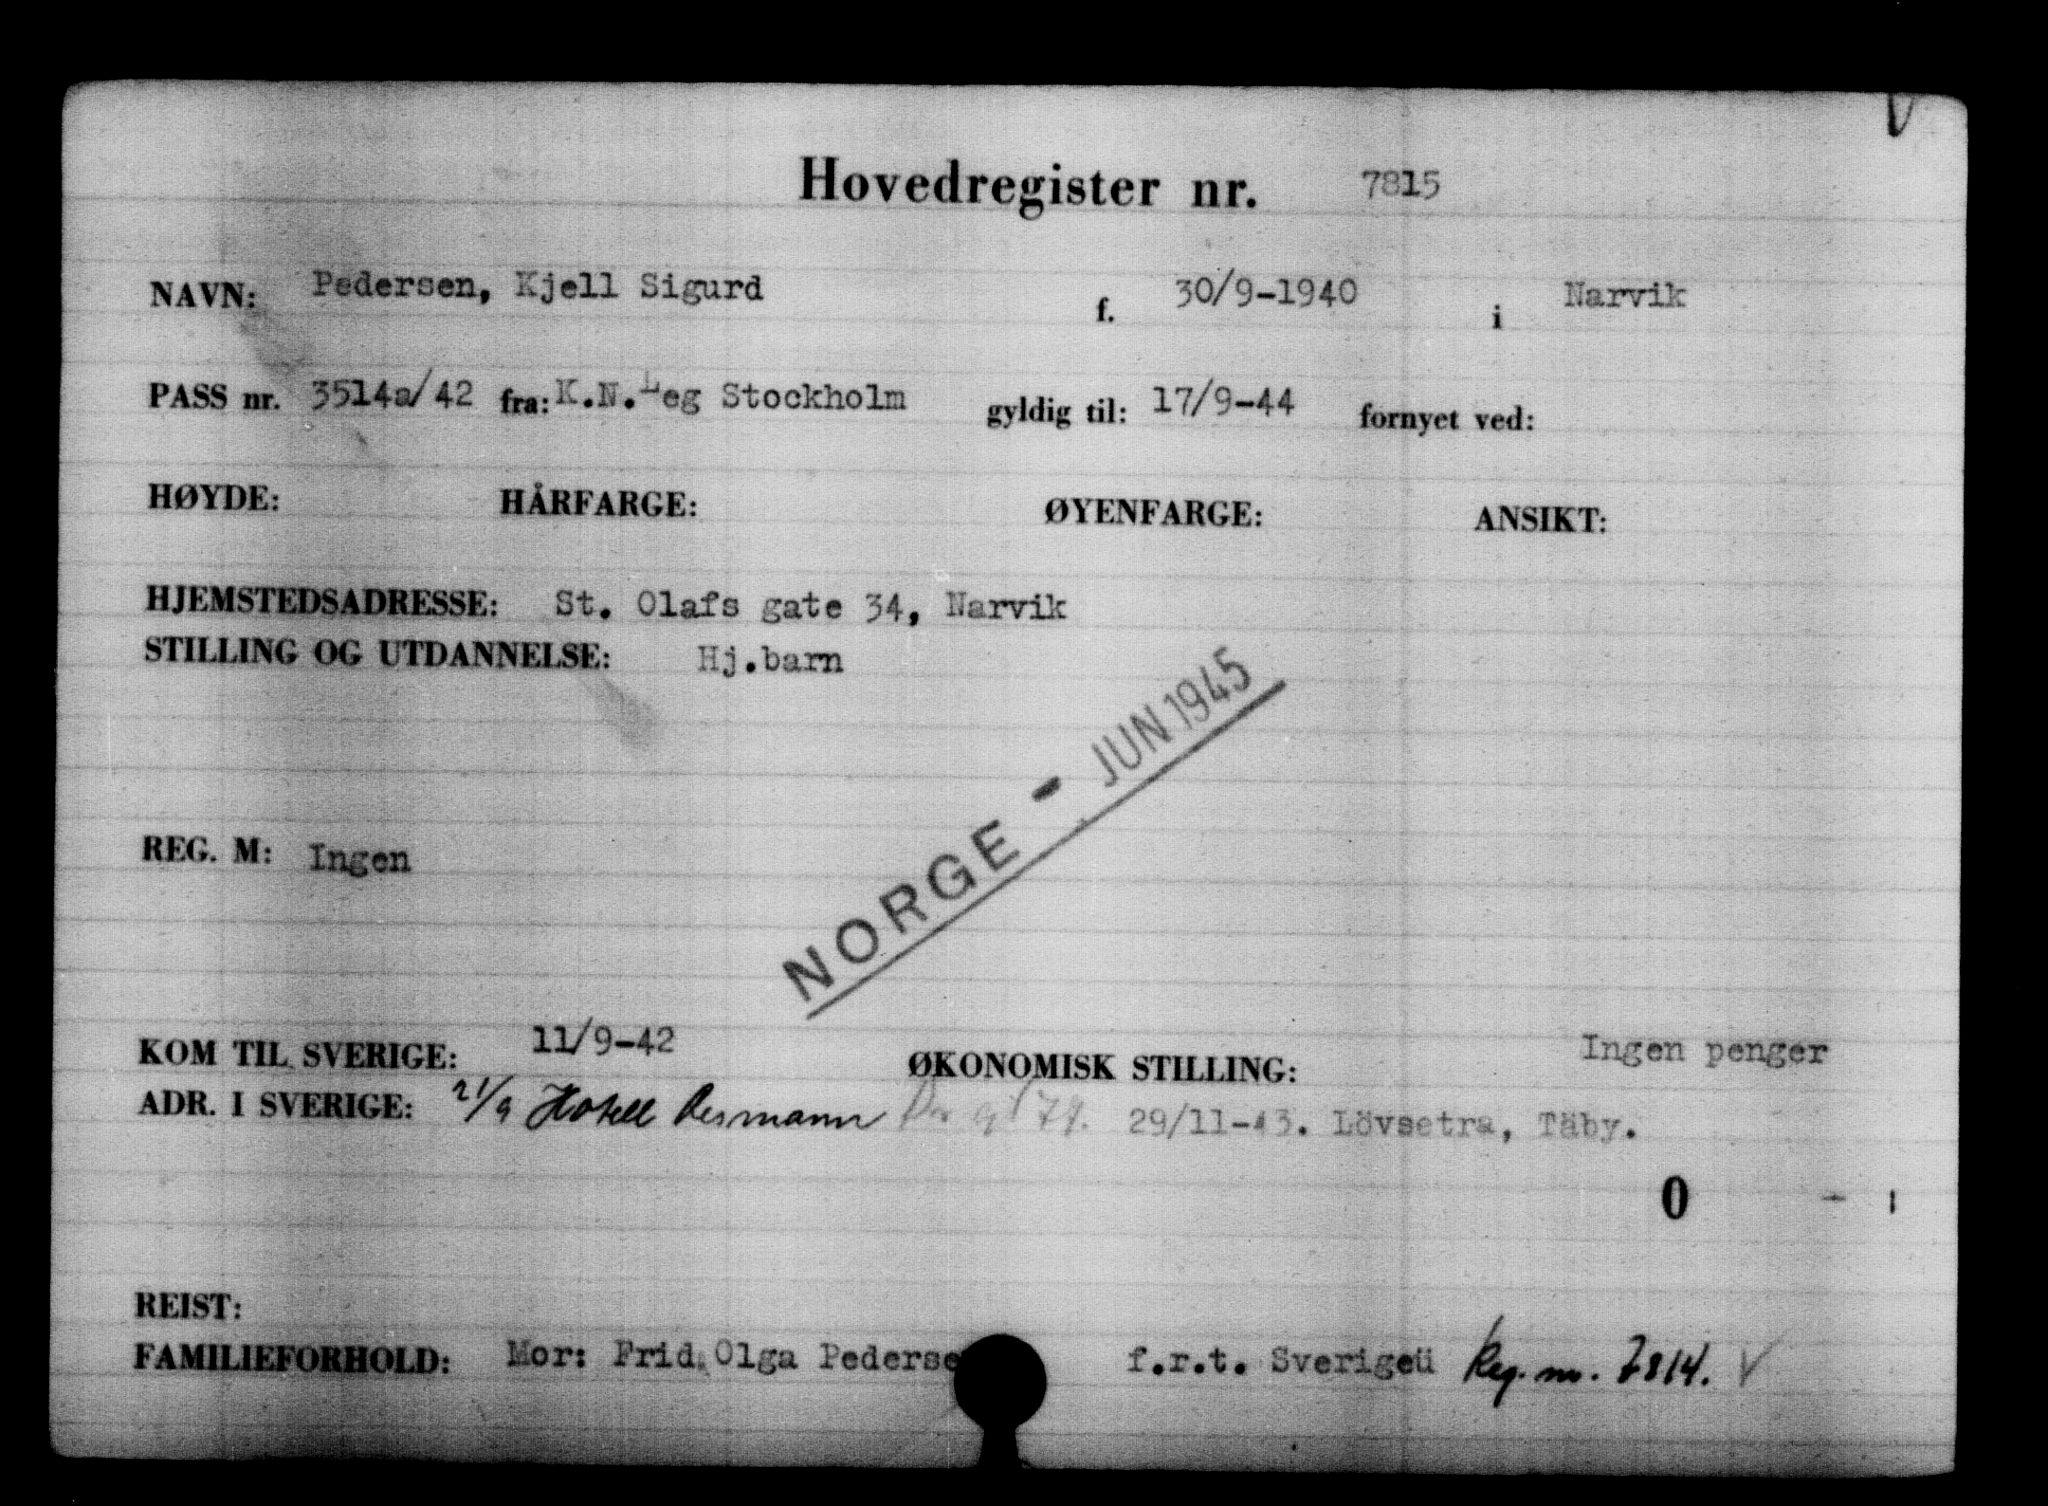 Hovedregister nr. 7815
NAVN: Pedersen, Kjell Sigurd f. 30/9-1940 i Narvik
PASS nr. 3514a/42 fra: K.N.Leg Stockholm gyldig til: 17/9-44 fornyet ved:
HØYDE: HÅRFARGE: ØYENFARGE: ANSIKT:
HJEMSTEDSADRESSE: St. Olafs gate 34, Narvik
STILLING OG UTDANNELSE: Hj.barn
NORGE - JUN 1945
REG. M: Ingen
KOM TIL SVERIGE: 11/9-42 ØKONOMISK STILLING: Ingen penger
ADR. I SVERIGE: 21/9 Hotell 29/11-43. Lövsetra, Täby.
0
REIST:
FAMILIEFORHOLD: Mor: Frid Olga Pederse f.r.t. Sverigeü Reg. nr. 7814. V